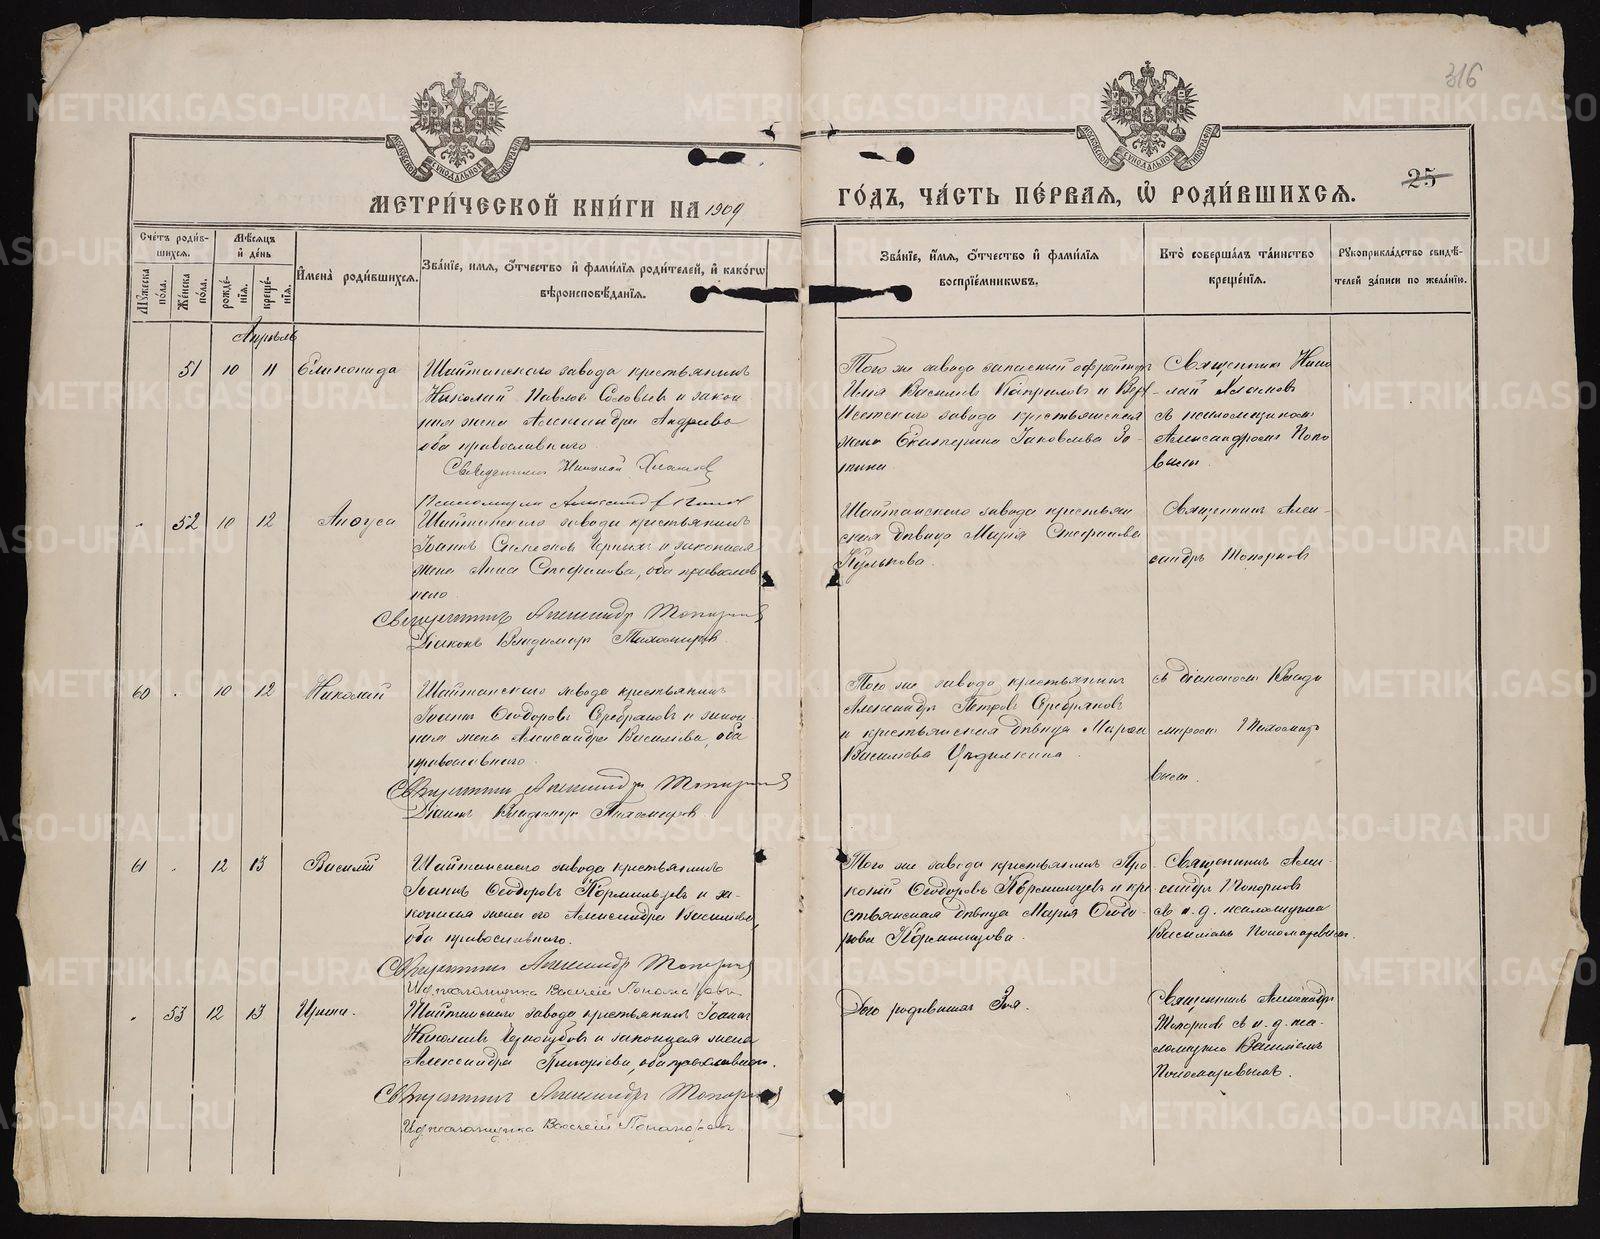 316
25
МЕТРИ́ЧЕСКОЙ КНИ́ГИ НА 1909
ГО́ДЪ, ЧА́СТЬ ПЕ́РВАЯ, Ѡ҆ РОДИ́ВШИХСЯ.
Сче́тъ роди́вшихся.
Мѣ́сяцъ и҆ де́нь
Му́жеска по́ла.
Же́нска по́ла.
рожде́нїя.
креще́нїя.
И҆мена̀ роди́вшихся.
Зва́нїе, и҆́мя, ѻ҆́тчество и҆ фами́лїя роди́телей, и҆ како́гѡ
вѣроисповѣ́данїя.
Зва́нїе, и҆́мя, ѻ҆́тчество и҆ фами́лїя
воспрїе́мникѡвъ.
Кто̀ соверша́лъ та́инство
креще́нїя.
Рꙋкоприкла́дство свидѣ́телей за́писи по жела́нїю.
Апрѣль
51 10 11 Еликонида
Шайтанскаго завода крестьянинъ
Николай Павлов Соловьев и закон
ная жена Александра Андреева
оба православнаго.
Священникъ Николай Хламов
Псаломщик Александр Попов
Того же завода запасный ефрейторъ
Илия Василiев Кайгалов и Верх
Исетскаго завода крестьянская
жена Екатерина Iаковлева Зо-
тина
Священник Нико
лай Хламов
съ псаломщиком
Александромъ Попо
вымъ.
52 10 12 Анфуса
Шайтанскаго завода крестьянинъ
Iоаннъ Симеоновъ Черныхъ и законная
жена Анна Стефанова, оба православ
наго.
Священникъ Александръ Топорков
Дiаконъ Владимиръ Тихомировъ
Шайтанскаго завода крестьян
ская дѣвица Марiя Стефанова
Кулькова.
Священникъ Алек-
сандръ Топорков
съ дiакономъ Влади
миромъ Тихомиро
вымъ.
60 10 12 Николай
Шайтанскаго завода крестьянинъ
Iоаннъ Ѳеодоровъ Серебряковъ и закон
ная жена Александра Васильева, оба
православнаго.
Священникъ Александръ Топорков
Дiаконъ Владимиръ Тихомировъ
Того же завода крестьянинъ
Александръ Петровъ Серебряковъ
и крестьянская дѣвица Марiя
Василiева
61 12 13 Василiй
Шайтанскаго завода крестьянинъ
Iоаннъ Ѳеодоровъ Кормильцевъ и за-
конная жена его Александра Василiева,
оба православнаго.
Священникъ Александръ Топорков
И д псаломщика Василiй Пономаревъ
Того же завода крестьянинъ Про
копiй Ѳеодоровъ Кормильцевъ и кре
стьянская дѣвица Марiя Ѳеодо-
рова Кормильцова.
Священникъ Алек-
сандръ Топорков
съ и. д. псаломщика
Василiемъ Пономаревымъ.
53 12 13 Ирина.
Шайтанскаго завода крестьянинъ Iоаннъ
Николаевъ и законная жена
Александра Григорiева, оба православнаго.
Священникъ Александръ Топорков
И д псаломщика Василiй Пономаревъ
Священникъ Александръ
Топорков съ и. д. пса-
ломщика Василiемъ
Пономаревымъ.